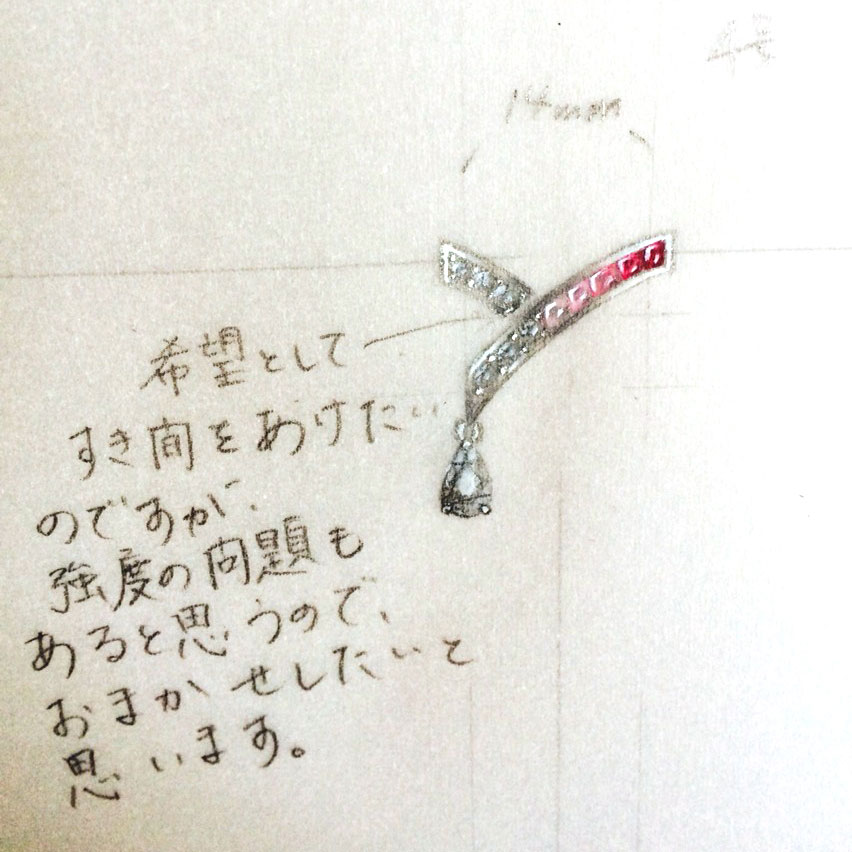 4号
14mm
希望として
すき間をあけたい
のですが、
強度の問題も
あると思うので、
おまかせしたいと
思います。